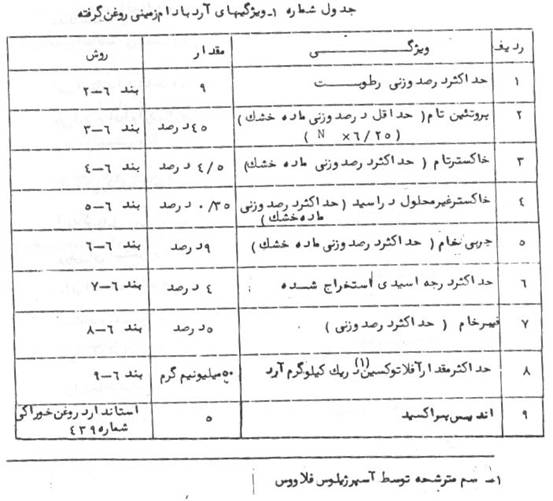 جدول شماره ۱ـ ویژگیهای آرد بادام زمینی روغن گرفته
ردیف ویژگـــی مقدار روش
۱ حداکثر درصد وزنی رطوبــت ۹ بند ۶-۲
۲ پروتئین تام ( حداقل درصد وزنی ماده خشک ) ۴۵ درصد بند ۶-۳
( N ×۶/۲۵ )
۳ خاکستر تام ( حداکثر درصد وزنی ماده خشک) ۴/۵ درصد بند ۶-۴
۴ خاکستر غیر محلول در اسید ( حداکثر درصد وزنی ۰/۳۵ درصد بند ۶-۵
ماده خشک )
۵ چربی خام ( حداکثر درصد وزنی ماده خشک ) ۹ درصد بند ۶-۶
۶ حداکثر درجه اسیدی استخراج شــده ۴ درصد بند ۶-۷
۷ فیبر خام ( حداکثر درصد وزنی ) ۵ درصد بند ۶-۸
۸ حداکثر مقدار آفلاتوکسین (۱) در یک کیلوگرم آرد ۵۰ میلیونیم گرم بند ۶-۹
۹ اندیس پراکسید ۵ استاندارد روغن خوراکی
شماره ۴۳۹
۱ـ سم مترشحه توسط آسپرژیلوس فلاووس